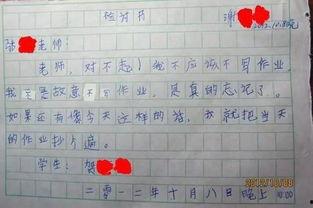 检讨书 谢
2012.10.8晚
张 老师：
老师，对不起！我不应该不写作业，
我不是故意不写作业，是真的忘记了。
如果还有像今天这样的话，我就把当天
的作业抄八遍。
学生：贺
二零一二年十月八日晚上10:00
2012/10/08